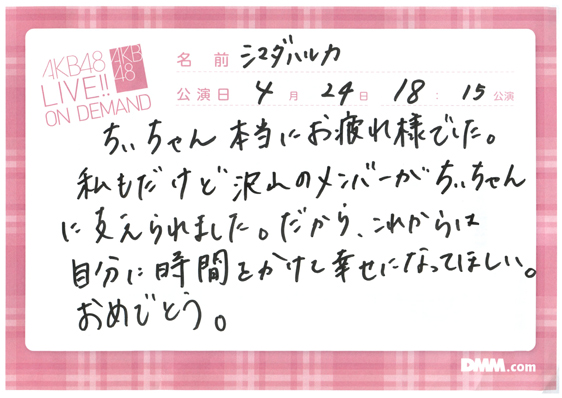 AKB48
LIVE!!
ON DEMAND
AKB
48
名前 シマダハルカ
公演日 4月24日 18:15公演
ちぃちゃん本当にお疲れ様でした。
私もだけど沢山のメンバーがちぃちゃん
に支えられました。だから、これからは
自分に時間をかけて幸せになってほしい。
おめでとう。
DMM.com